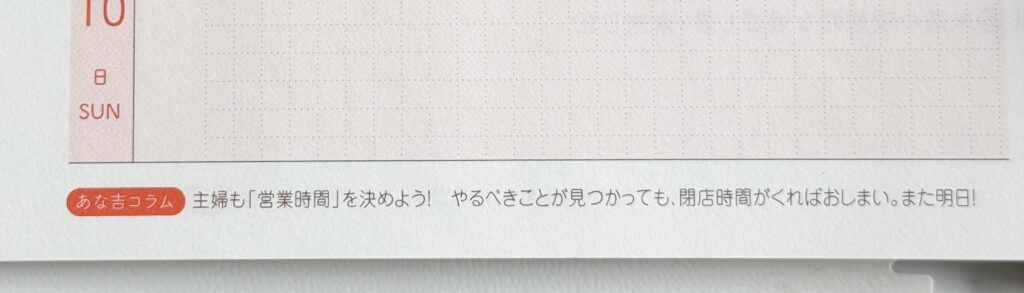 10
日
SUN
あな吉コラム 主婦も「営業時間」を決めよう! やるべきことが見つかっても、閉店時間がくればおしまい。また明日!